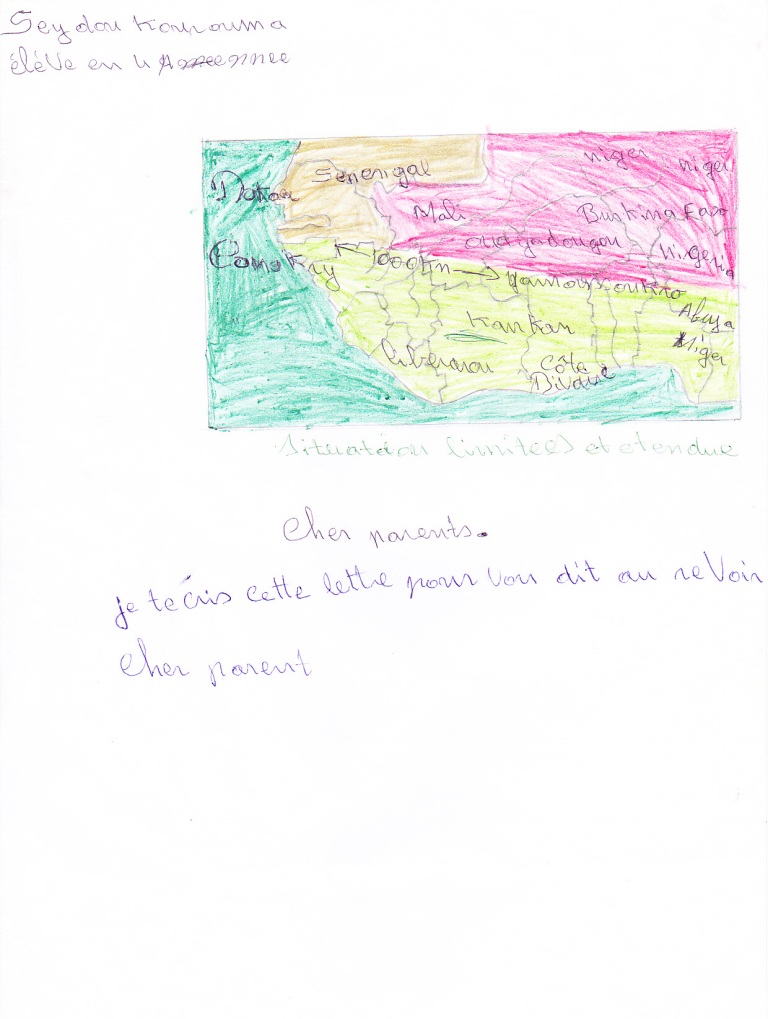 Seydou Kourouma
élève en 4 Annee
Senenigal
niger niger
Dakar
Mali Burkina Faso
ouagadougou nigeria
Conakry 1000km yamoussoukro
Abuja
Kankan
Niger
Côte
Divoire
Situation limite(s) et etendue
Cher parents.
je técris cette lettre pour vou dit au revoir
Cher parent